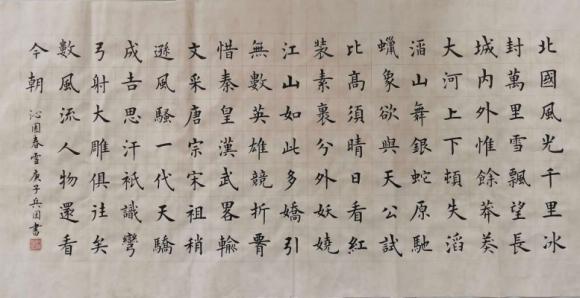 北國風光千里冰
封萬里雪飄望長
城內外惟餘莽莽
大河上下頓失滔
滔山舞銀蛇原馳
蠟象欲與天公試
比高須晴日看紅
裝素裹分外妖嬈
江山如此多嬌引
無數英雄競折腰
惜秦皇漢武畧輸
文采唐宗宋祖稍
遜風騷一代天驕
成吉思汗祇識彎
弓射大雕俱往矣
數風流人物還看
今朝 沁園春雪庚子兵園書